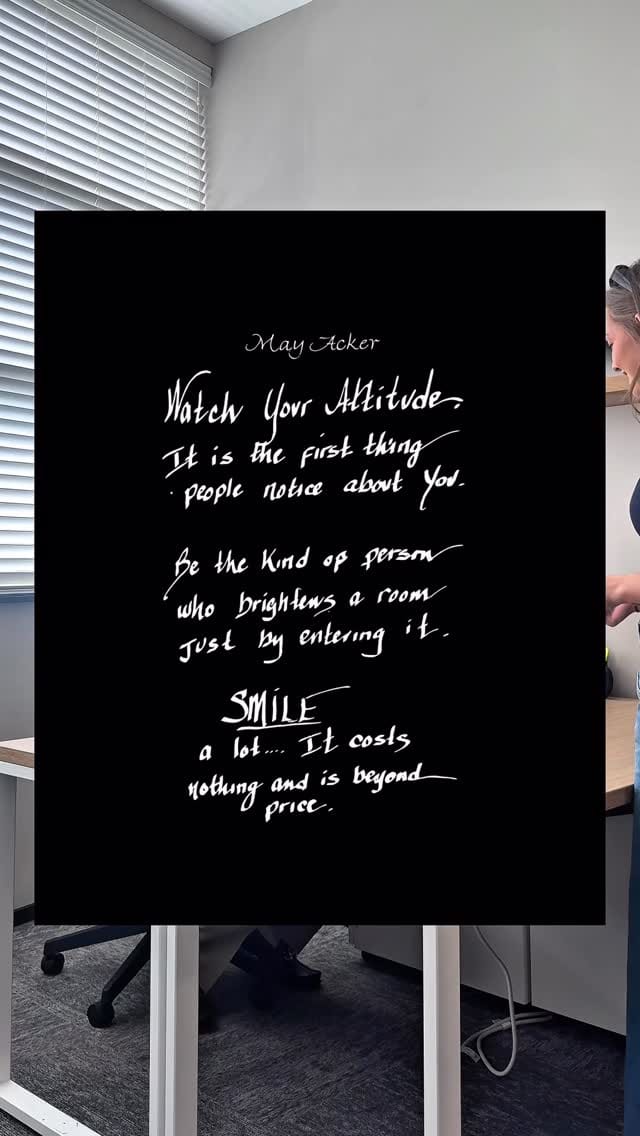 May Acker
Watch Your Attitude.
It is the first thing
people notice about You.
Be the Kind of person
who brightens a room
just by entering it.
SMILE
a lot.... It costs
nothing and is beyond
price.